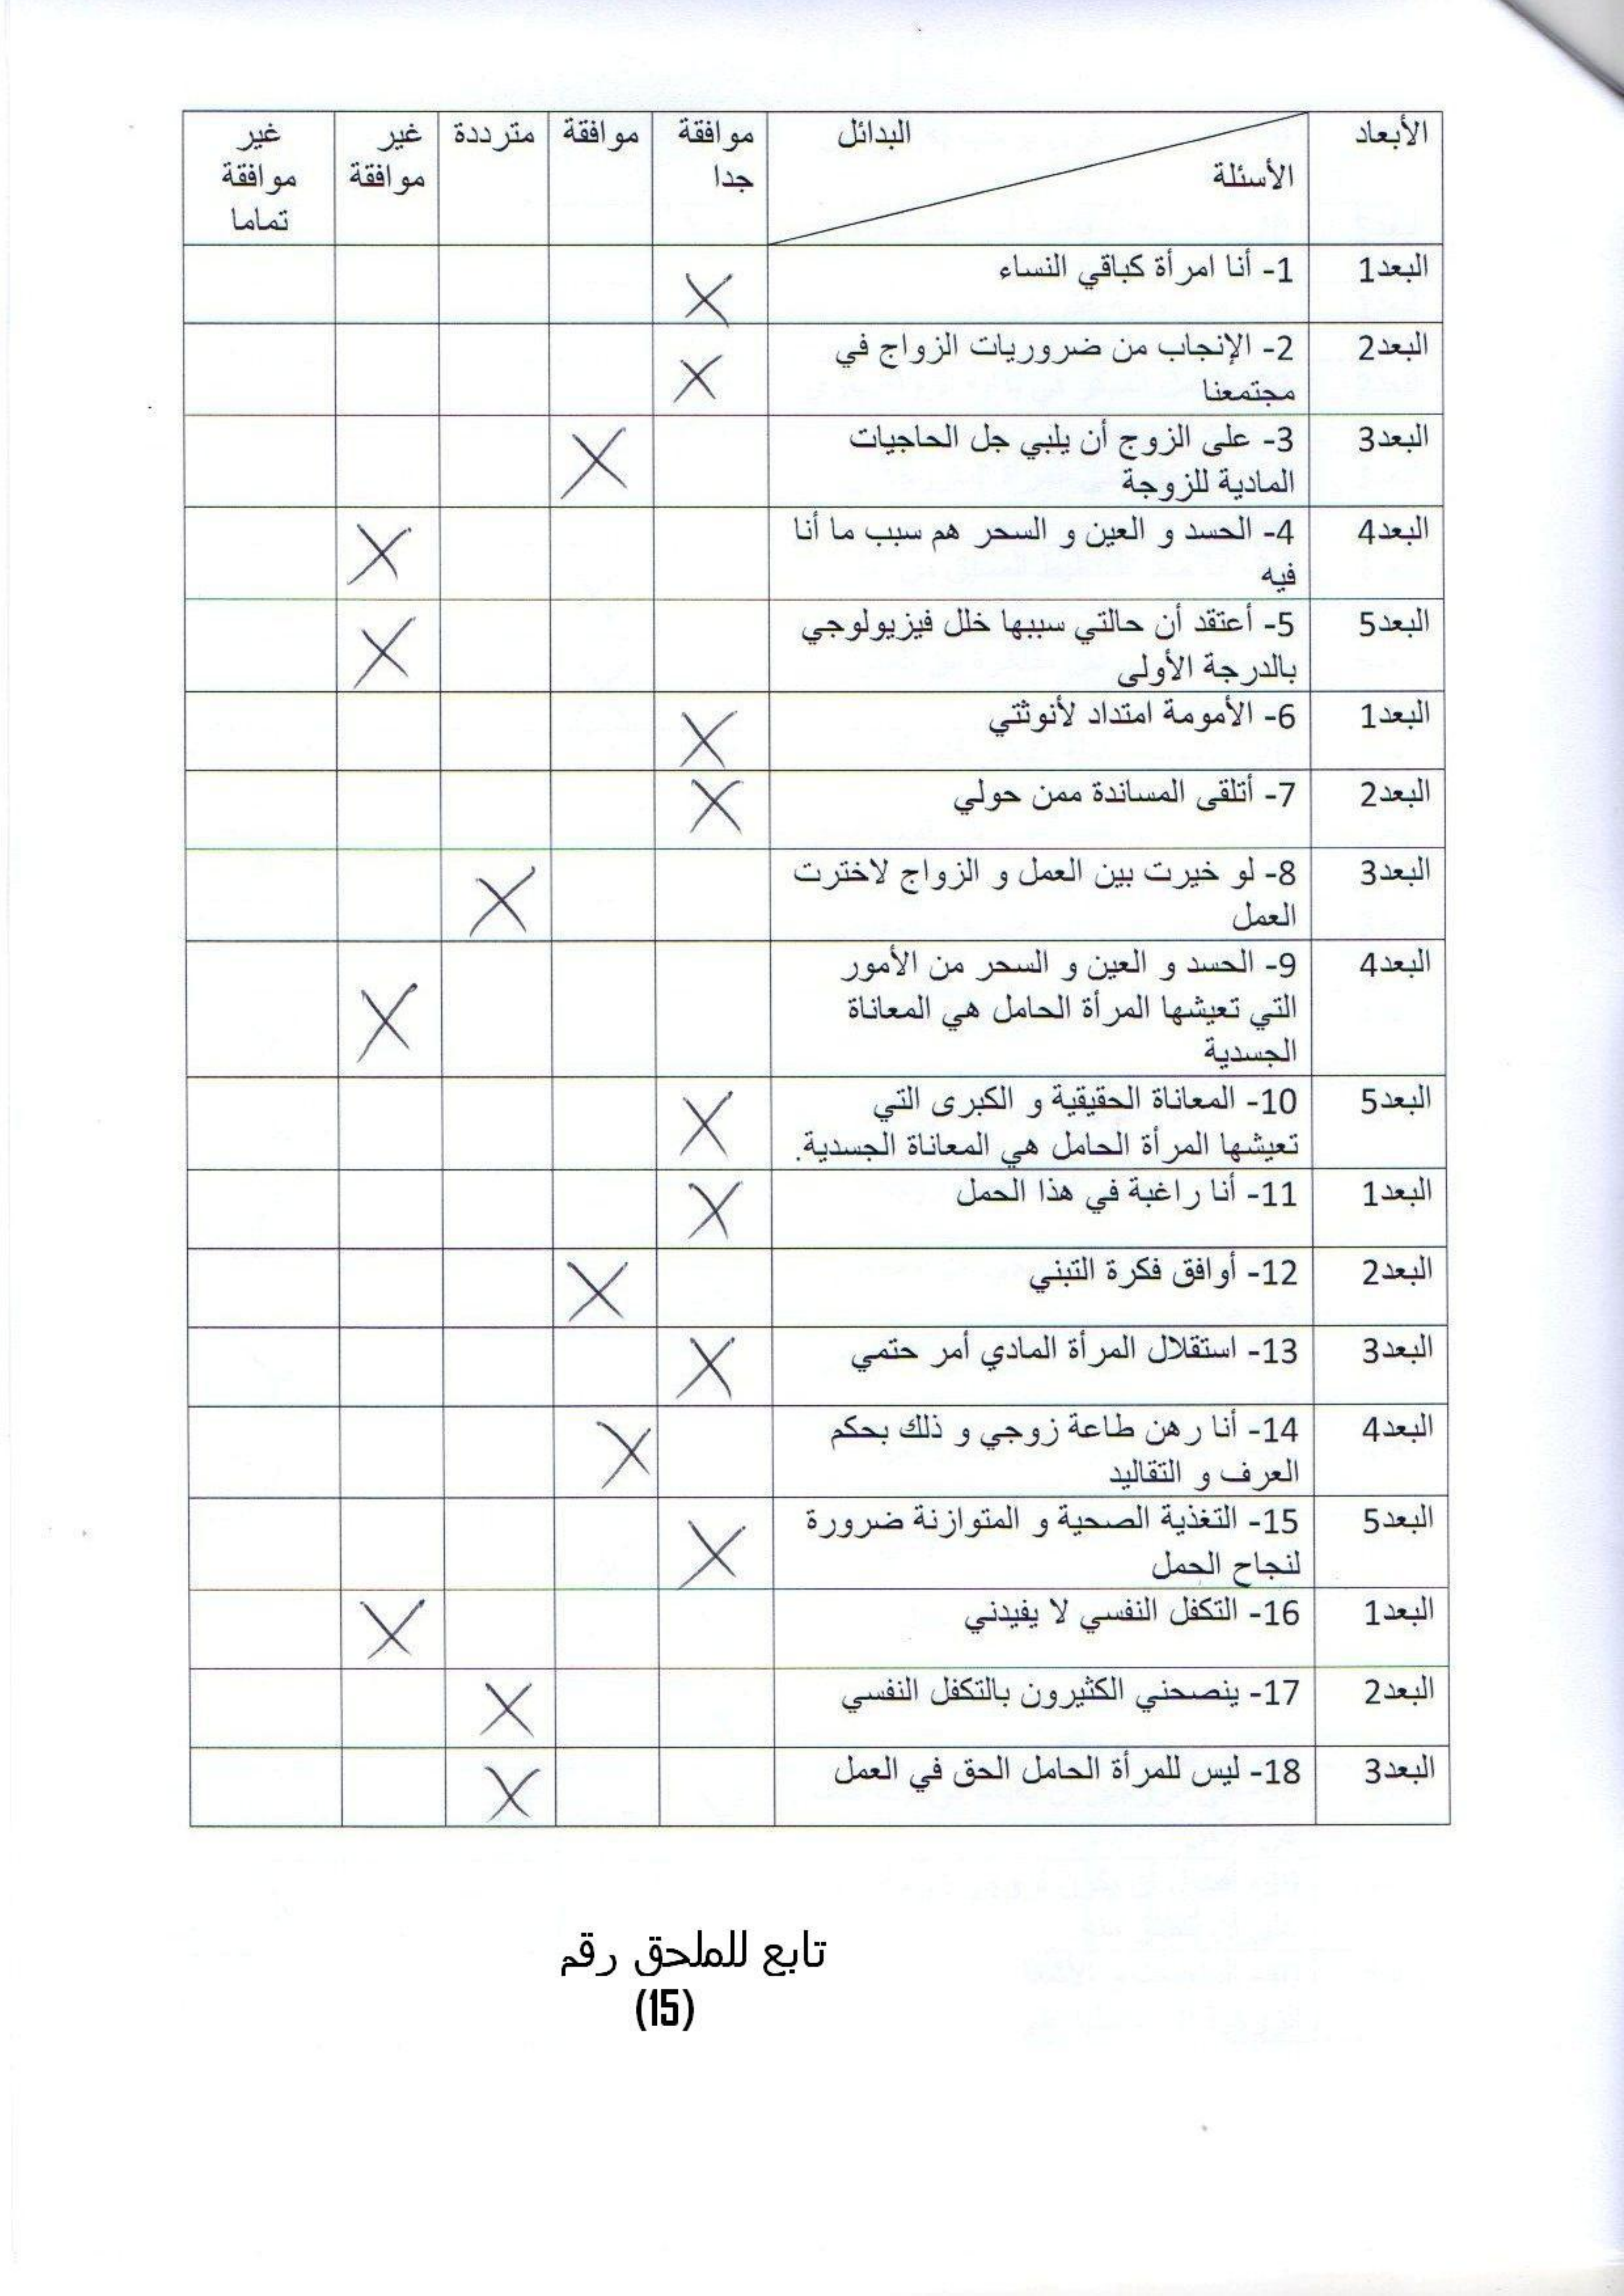 الأبعاد البدائل موافقة موافقة مترددة غير غير
الأسئلة جدا موافقة موافقة
تماما
البعد1 1- أنا امرأة كباقي النساء X
البعد2 2- الإنجاب من ضروريات الزواج في X
مجتمعنا
البعد3 3- على الزوج أن يلبي جل الحاجيات X
المادية للزوجة
البعد4 4- الحسد و العين و السحر هم سبب ما أنا X
فيه
البعد5 5- أعتقد أن حالتي سببها خلل فيزيولوجي X
بالدرجة الأولى
البعد1 6- الأمومة امتداد لأنوثتي X
البعد2 7- أتلقى المساندة ممن حولي X
البعد3 8- لو خيرت بين العمل و الزواج لاخترت X
العمل
البعد4 9- الحسد و العين و السحر من الأمور
التي تعيشها المرأة الحامل هي المعاناة X
الجسدية
البعد5 10- المعاناة الحقيقية و الكبرى التي X
تعيشها المرأة الحامل هي المعاناة الجسدية.
البعد1 11- أنا راغبة في هذا الحمل X
البعد2 12- أوافق فكرة التبني X
البعد3 13- استقلال المرأة المادي أمر حتمي X
البعد4 14- أنا رهن طاعة زوجي و ذلك بحكم X
العرف و التقاليد
البعد5 15- التغذية الصحية و المتوازنة ضرورة X
لنجاح الحمل
البعد1 16- التكفل النفسي لا يفيدني X
البعد2 17- ينصحني الكثيرون بالتكفل النفسي X
البعد3 18- ليس للمرأة الحامل الحق في العمل X
تابع للملحق رقم
(15)